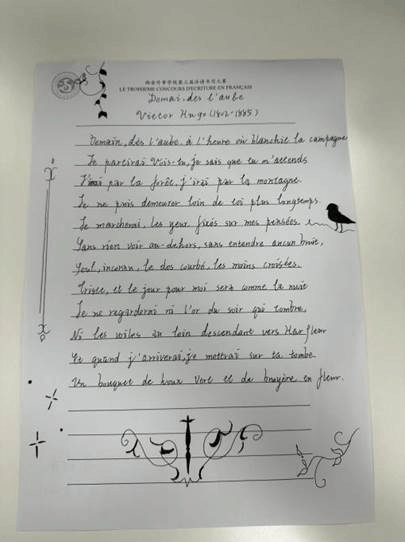 西安外事学院第三届法语书写大赛
LE TROISIEME CONCOURS D'ECRITURE EN FRANÇAIS
Demai, dès l'aube
Victor Hugo (1802-1885)
Demain, dès l'aube, à l'heure où blanchit la campagne
Je partirai Vois-tu, je sais que tu m'attends
J'irai par la forêt, j'irai par la montagne
Je ne puis demeurer loin de toi plus longtemps.
Je marcherai, les yeux fixés sur mes pensées.
Sans rien voir au-dehors, sans entendre aucun bruit,
Seul, inconnu, le dos courbé, les mains croisées.
Triste, et le jour pour moi sera comme la nuit
Je ne regarderai ni l'or du soir qui tombe,
Ni les voiles au loin descendant vers Harfleur
Et quand j'arriverai, je mettrai sur ta tombe
Un bouquet de houx vert et de bruyère en fleur.